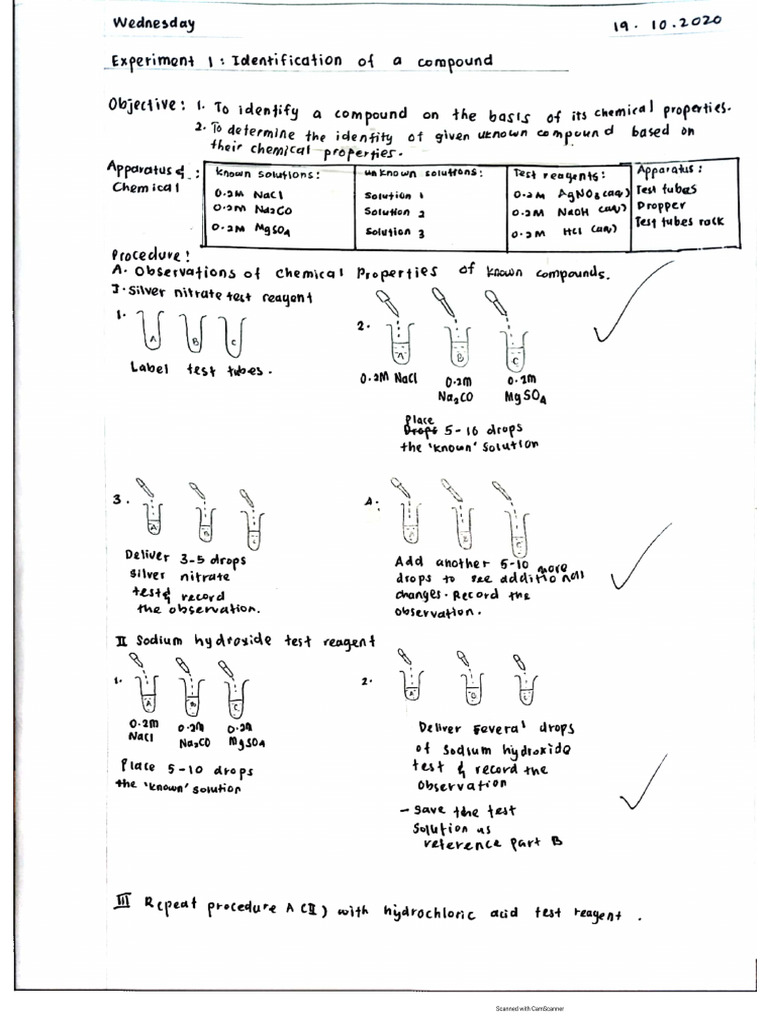 Wednesday
19. 10. 2020
Experiment 1 : Identification of a compound
Objective: 1. To identify a compound on the basis of its chemical properties.
2. To determine the identity of given uknown compound based on
their chemical properties.
Apparatus & :
Chemical
known solutions:
0.2M NaCl
0.2M Na2CO
0.2M MgSO4
unknown solutions:
Solution 1
Solution 2
Solution 3
Test reagents:
0.2M AgNO3 (aq)
0.2M NaOH (aq)
0.2M HCl (aq)
Apparatus:
Test tubes
Dropper
Test tubes rack
Procedure:
A. Observations of chemical Properties of known compounds.
I. Silver nitrate test reagent
1.
A B C
Label test tubes.
2.
A B C
0.2M NaCl
0.2M
Na2CO
0.2M
MgSO4
Place
Drops 5-10 drops
the 'known' solution
3.
A B C
Deliver 3-5 drops
silver nitrate
test & record
the observation.
4.
Add another 5-10 more
drops to see additionall
changes. Record the
observation.
II Sodium hydroxide test reagent
1.
A B C
0.2M
NaCl
0.2M
Na2CO
0.2M
MgSO4
Place 5-10 drops
the 'known' solution
2.
Deliver several drops
of sodium hydroxide
test & record the
observation
- Save the test
solution as
reference part B
III Repeat procedure A(II) with hydrochloric acid test reagent.
Scanned with CamScanner